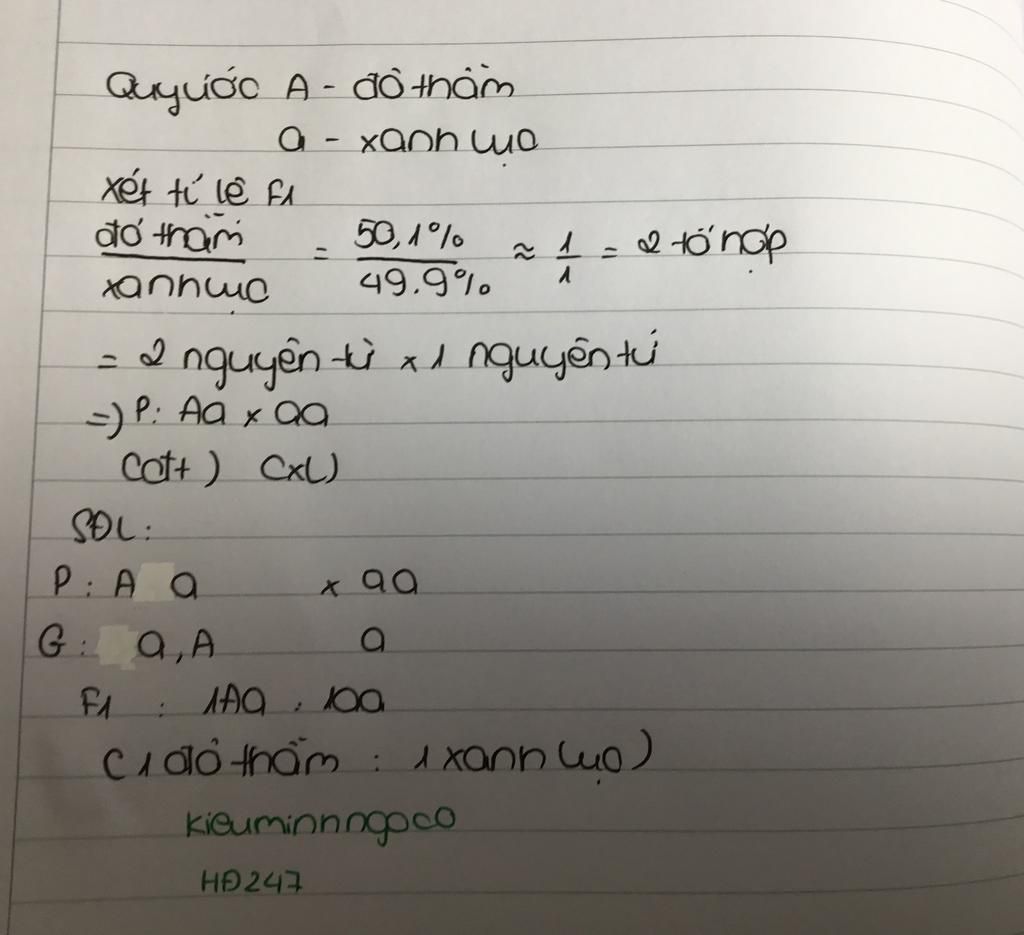 Quy ước A - đỏ thẫm
a - xanh lục
xét tỉ lệ F1
đỏ thẫm / xanh lục = 50,1% / 49.9% ≈ 1/1 = 2 tổ hợp
= 2 nguyên tử x 1 nguyên tử
=) P: Aa x aa
(đt) (xL)
SĐL:
P: A a x aa
G: a, A a
F1 : 1Aa : 1aa
(1 đỏ thẫm : 1 xanh lục)
kieuminhngoc0
HĐ247